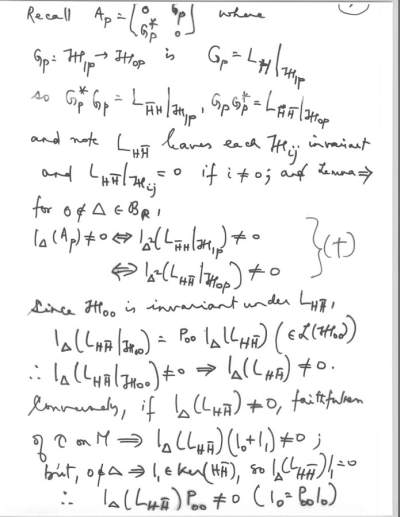 Recall A_p = (0 G_p / G_p^* 0) where
G_p: ℋ_{1p} → ℋ_{0p} is G_p = L_H|_{ℋ_{1p}}
so G_p^* G_p = L_{H̄H}|_{ℋ_{1p}}, G_p G_p^* = L_{HH̄}|_{ℋ_{0p}}
and note L_{HH̄} leaves each ℋ_{ij} invariant
and L_{HH̄}|_{ℋ_{ij}} = 0 if i ≠ 0; and Lemma ⇒
for 0 ∉ Δ ∈ B_R,
1_Δ(A_p) ≠ 0 ⇔ 1_{Δ²}(L_{H̄H}|_{ℋ_{1p}}) ≠ 0
⇔ 1_{Δ²}(L_{HH̄}|_{ℋ_{0p}}) ≠ 0 } (†)
Since ℋ_{00} is invariant under L_{HH̄},
1_Δ(L_{HH̄}|_{ℋ_{00}}) = P_{00} 1_Δ(L_{HH̄}) (∈ ℒ(ℋ_{00}))
∴ 1_Δ(L_{HH̄}|_{ℋ_{00}}) ≠ 0 ⇒ 1_Δ(L_{HH̄}) ≠ 0.
Conversely, if 1_Δ(L_{HH̄}) ≠ 0, faithfulness
of τ on M ⇒ 1_Δ(L_{HH̄})(1_0 + 1_1) ≠ 0;
but, 0 ∉ Δ ⇒ 1_1 ∈ ker(HH̄), so 1_Δ(L_{HH̄})1_1 = 0
∴ 1_Δ(L_{HH̄}) P_{00} ≠ 0 (1_0 = P_{00} 1_0)